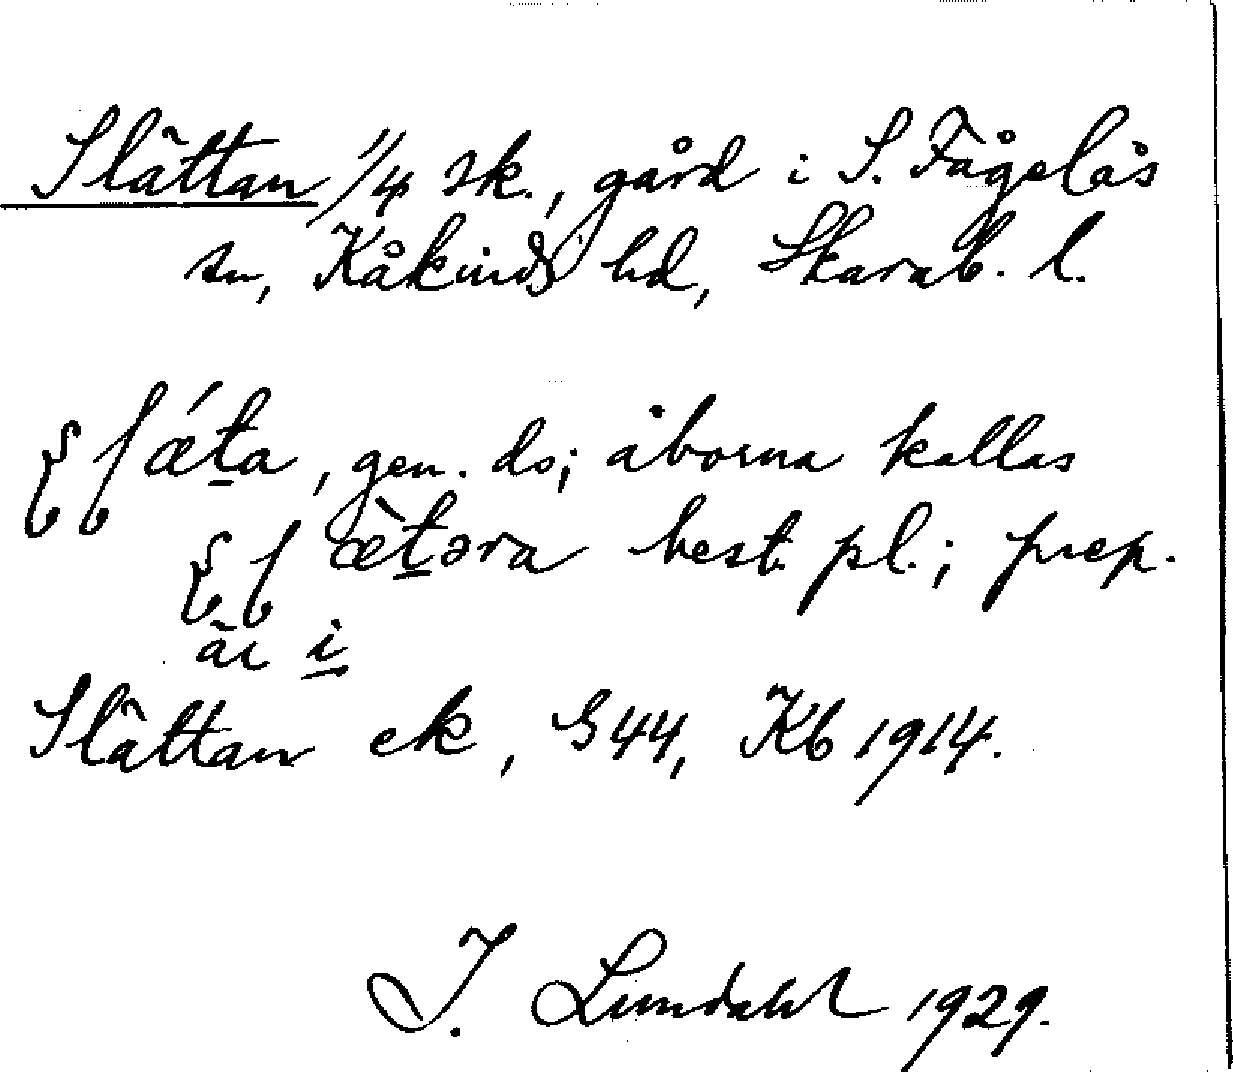 Slättan 1/4 sk., gård i S. Fågelås
sn, Kåkinds hd, Skarab. l.
ǽta, gen. ds; åborna kallas
æ̀təra best. pl.; prep.
är i
Slättan ek, G 44, Kb 1914.
I. Lundahl 1929.